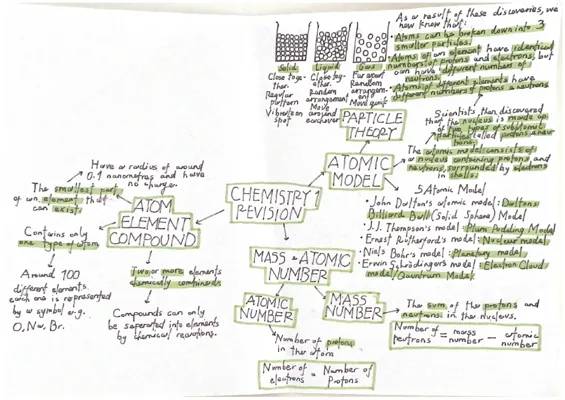 As a result of these discoveries, we
now know that:
• Atoms can be broken down into 3
smaller particles.
• Atoms of an element have identical
numbers of protons and electrons, but
can have different numbers of
neutrons.
• Atoms of different elements have
different numbers of protons & neutrons
Solid
Close toge-
ther.
Regular
pattern
Vibrate on
spot
Liquid
Close tog-
ether.
Random
arrangement
Move
around
eachother
Gas
Far apart
Random
arrangem-
ent
Move quick
PARTICLE
THEORY
Scientists then discovered
that the nucleus is made up
of two types of subatomic
particles called protons & neu-
trons.
ATOMIC
MODEL
The atomic model consists of
a nucleus containing protons and
neutrons, surrounded by electrons
in shells.
5 Atomic Model
• John Dalton's atomic model: Daltons
Billiard Ball (Solid Sphere) Model
• J.J. Thompson's model: Plum Pudding Model
• Ernest Rutherford's model: Nuclear model
• Niels Bohr's model: Planetary model
• Erwin Schrödingers model: Electron Cloud
model/Quantum Model
CHEMISTRY 1
REVISION
ATOM
ELEMENT
COMPOUND
Have a radius of around
0.1 nanometres and have
no charge.
The smallest part
of an element that
can exist.
Contains only
one type of atom
Around 100
different elements.
each one is represented
by a symbol e.g.
O, Na, Br.
Two or more elements
chemically combined.
Compounds can only
be seperated into elements
by chemical reactions.
MASS & ATOMIC
NUMBER
ATOMIC
NUMBER
Number of protons
in the atom
Number of electrons = Number of Protons
MASS
NUMBER
The sum of the protons and
neutrons in the nucleus.
Number of neutrons = mass number - atomic number